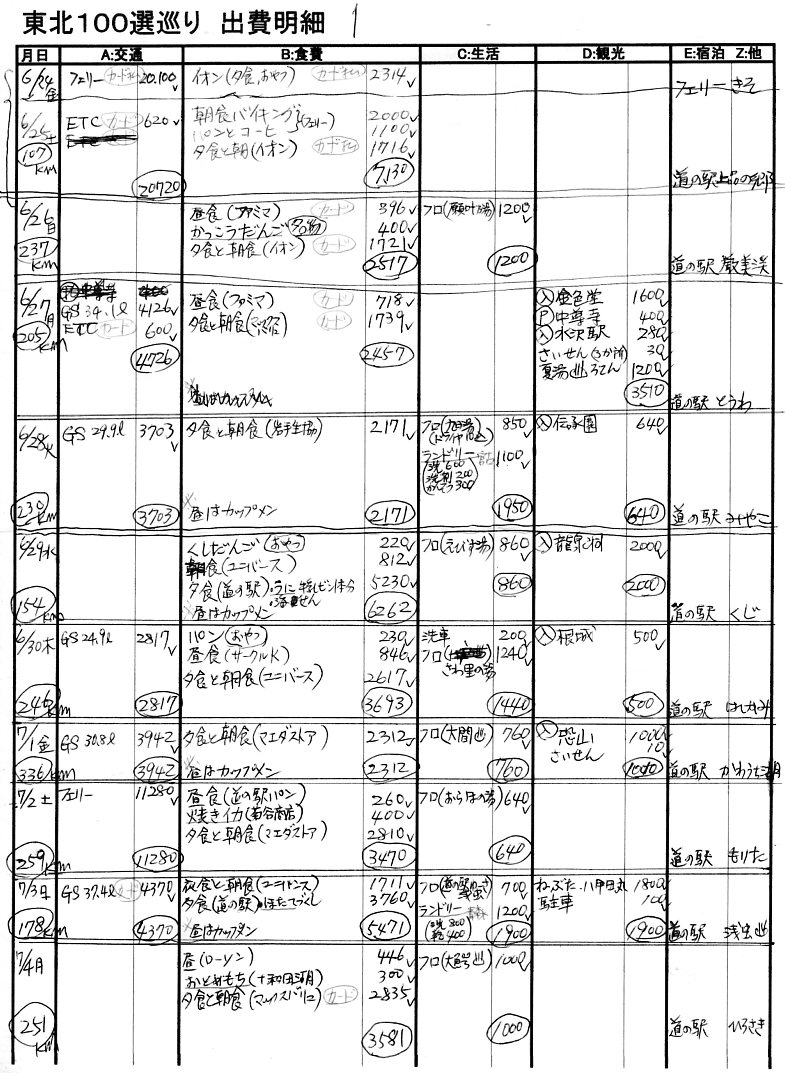 東北100選巡り 出費明細 1
月日 A:交通 B:食費 C:生活 D:観光 E:宿泊 Z:他
6/24金 フェリー カード払 20.100 イオン(夕食、おやつ) カード払 2314 フェリー きそ
6/25土 ETC カード 620 朝食バイキング (フェリー) 2000
パンとコーヒ 1100
107 KM 夕食と朝(イオン) カード 1716
20720 7130 道の駅
6/26日 昼食(ファミマ) カード 396 フロ 1200
かっこうだんご 名物 400
237 KM 夕食と朝食(イオン) カード 1721
2517 1200 道の駅 厳美渓
6/27月 昼食(ファミマ) カード 718 入 金色堂 1600
GS 34.1ℓ 4126 夕食と朝食 カード 1739 P 中尊寺 400
205 KM ETC カード 600 入 水沢駅 280
さいせん(3か所) 30
4726 2457 夏油山ろてん 1200
3510 道の駅 とうわ
6/28火 GS 29.9ℓ 3703 夕食と朝食(岩手生協) 2171 フロ 850 入 伝承園 640
ランドリー 1100
洗 600
洗剤 200
かんそう 300
230 KM 3703 昼はカップメン 2171 1950 640 道の駅 みやこ
6/29水 くしだんご おやつ 220 フロ(えびす湯) 860 入 龍泉洞 2000
朝食(ユニバース) 812
夕食(道の駅) 5230
154 KM 昼はカップメン 6262 860 2000 道の駅 くじ
6/30木 GS 24.9ℓ 2817 パン おやつ 230 洗車 200 入 根城 500
昼食(サークルK) 846 フロ 1240
夕食と朝食(ユニバース) 2617 さわ里の湯
246 KM 2817 3693 1440 500 道の駅 はしかみ
7/1金 GS 30.8ℓ 3942 夕食と朝食(マエダストア) 2312 フロ(大間 760 入 恐山 1000
さいせん 10
336 KM 3942 昼はカップメン 2312 760 道の駅 かわうち湖
7/2土 フェリー 11280 昼食(道の駅パン) 260 フロ(おらほの湯) 640
焼きイカ(菊谷商店) 400
夕食と朝食(マエダストア) 2810
259 KM 11280 3470 640 道の駅 もりた
7/3日 GS 37.4ℓ カード 4370 夜食と朝食(ユニバース) 1711 フロ 700 ねぶた、八甲田丸 1800
夕食(道の駅)ほたてづくし 3760 ランドリー 1200 駐車 100
洗 800
乾 400
178 KM 4370 昼はカップメン 5471 1900 1900 道の駅 浅虫
7/4月 昼(ローソン) 446 フロ 1000
おとめもち(十和田湖) 300
夕食と朝食(マックスバリュ) カード 2835
251 KM 3581 1000 道の駅 ひろさき